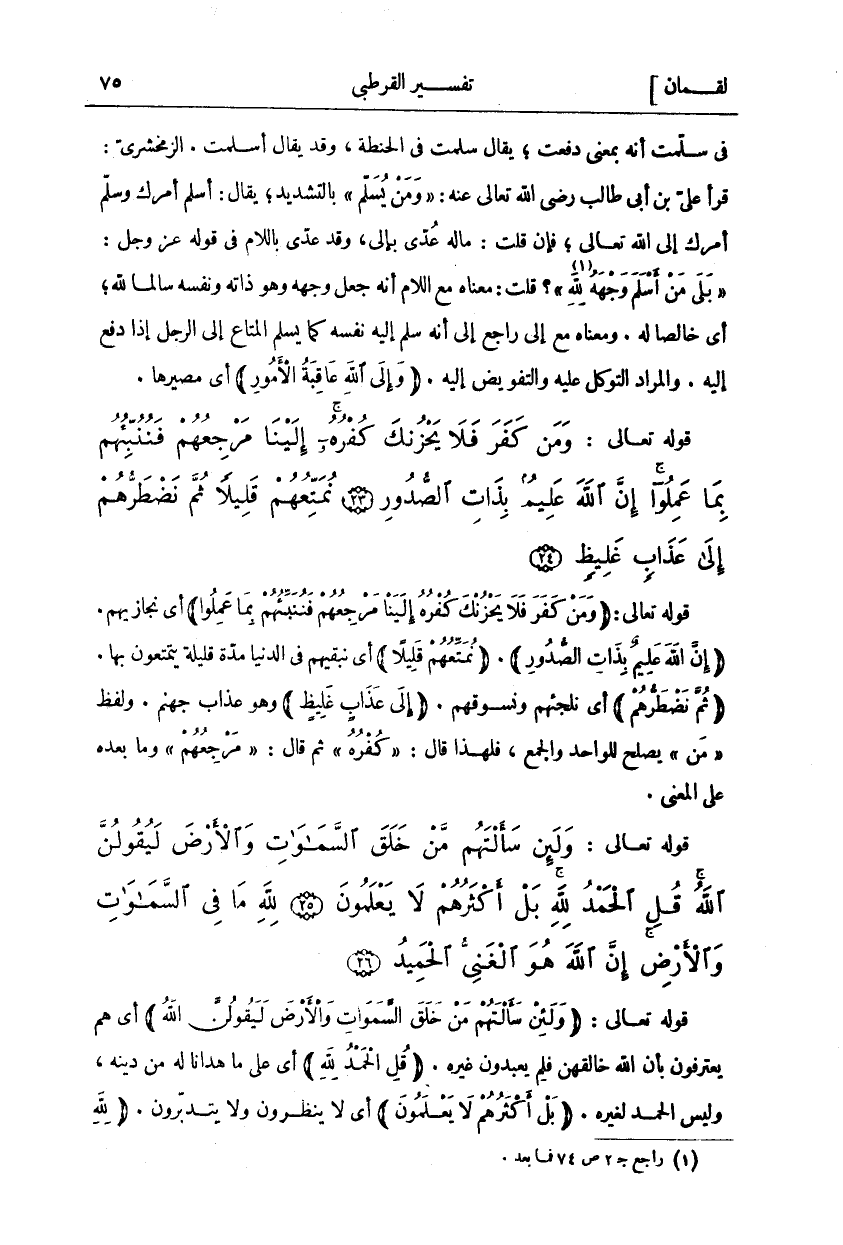 لقمان ] تفسير القرطبى ٧٥
فى سلّمت أنه بمعنى دفعت ؛ يقال سلمت فى الحنطة ، وقد يقال أسلمت . الزمخشرىّ :
قرأ علىّ بن أبى طالب رضى الله تعالى عنه : « وَمَنْ يُسَلِّم » بالتشديد؛ يقال : أسلم أمرك وسلّم
أمرك إلى الله تعالى ؛ فإن قلت : ماله عُدّى بإلى، وقد عدّى باللام فى قوله عز وجل :
« بَلَى مَنْ أَسْلَمَ وَجْهَهُ لِلّٰهِ (١) »؟ قلت : معناه مع اللام أنه جعل وجهه وهو ذاته ونفسه سالما لله؛
أى خالصا له . ومعناه مع إلى راجع إلى أنه سلم إليه نفسه كما يسلم المتاع إلى الرجل إذا دفع
إليه . والمراد التوكل عليه والتفويض إليه . ( وَإِلَى ٱللهِ عَاقِبَةُ الْأُمُورِ ) أى مصيرها .
قوله تعالى : وَمَن كَفَرَ فَلَا يَحْزُنكَ كُفْرُهُۥٓ ۚ إِلَيْنَا مَرْجِعُهُمْ فَنُنَبِّئُهُم
بِمَا عَمِلُوٓا۟ ۚ إِنَّ ٱللَّهَ عَلِيمٌۢ بِذَاتِ ٱلصُّدُورِ ٢٣ نُمَتِّعُهُمْ قَلِيلًا ثُمَّ نَضْطَرُّهُمْ
إِلَىٰ عَذَابٍ غَلِيظٍ ٢٤
قوله تعالى : ( وَمَنْ كَفَرَ فَلَا يَحْزُنْكَ كُفْرُهُ إِلَيْنَا مَرْجِعُهُمْ فَنُنَبِّئُهُمْ بِمَا عَمِلُوا ) أى نجازيهم .
( إِنَّ اللهَ عَلِيمٌ بِذَاتِ الصُّدُورِ ) . ( نُمَتِّعُهُمْ قَلِيلًا ) أى نبقيهم فى الدنيا مدّة قليلة يتمتعون بها .
( ثُمَّ نَضْطَرُّهُمْ ) أى نلجئهم ونسوقهم . ( إِلَى عَذَابٍ غَلِيظٍ ) وهو عذاب جهنم . ولفظ
« مَن » يصلح للواحد والجمع ، فلهذا قال : « كُفْرُهُ » ثم قال : « مَرْجِعُهُمْ » وما بعده
على المعنى .
قوله تعالى : وَلَئِن سَأَلْتَهُم مَّنْ خَلَقَ ٱلسَّمَـٰوَٰتِ وَٱلْأَرْضَ لَيَقُولُنَّ
ٱللَّهُ ۚ قُلِ ٱلْحَمْدُ لِلَّهِ ۚ بَلْ أَكْثَرُهُمْ لَا يَعْلَمُونَ ٢٥ لِلَّهِ مَا فِى ٱلسَّمَـٰوَٰتِ
وَٱلْأَرْضِ ۚ إِنَّ ٱللَّهَ هُوَ ٱلْغَنِىُّ ٱلْحَمِيدُ ٢٦
قوله تعالى : ( وَلَئِنْ سَأَلْتَهُمْ مَنْ خَلَقَ السَّمَوَاتِ وَالْأَرْضَ لَيَقُولُنَّ اللهُ ) أى هم
يعترفون بأن الله خالقهن فلم يعبدون غيره . ( قُلِ الْحَمْدُ لِلّٰهِ ) أى على ما هدانا له من دينه ،
وليس الحمد لغيره . ( بَلْ أَكْثَرُهُمْ لَا يَعْلَمُونَ ) أى لا ينظرون ولا يتدبّرون . ( لِلّٰهِ
(١) راجع جـ ٢ ص ٧٤ فما بعد .